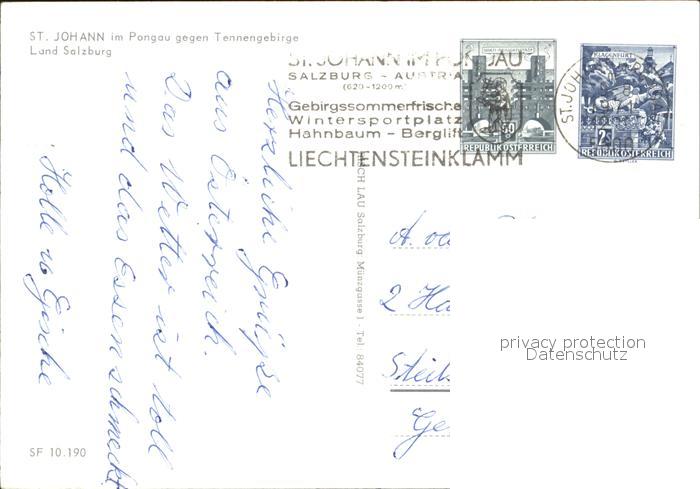 ST. JOHANN im Pongau gegen Tennengebirge
Land Salzburg
ST. JOHANN IM PONGAU
SALZBURG - AUSTRIA
(620-1200m)
Gebirgssommerfrische
Wintersportplatz
Hahnbaum - Berglift
LIECHTENSTEINKLAMM
50
REPUBLIK ÖSTERREICH
KLAGENFURT
2S
REPUBLIK ÖSTERREICH
ST. JOH
Herzliche Grüße
aus Österreich.
Das Wetter ist toll
und das Essen schmeckt
Holle u
LAU Salzburg Münzgasse 1 - Tel. 84077
A.
2 Ha
Ge
privacy protection
Datenschutz
SF 10.190